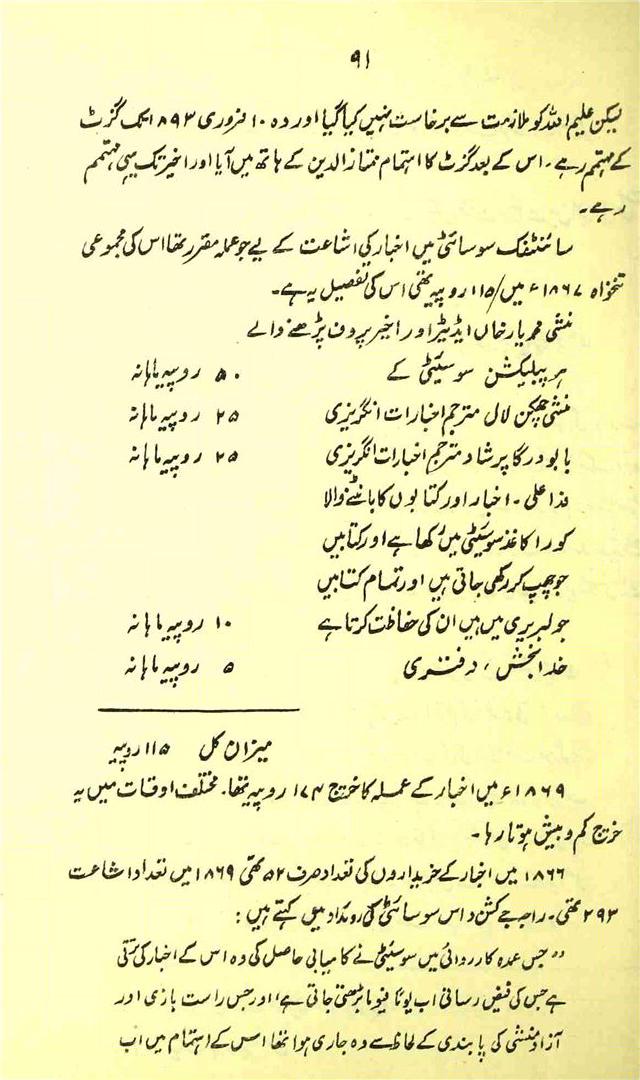 ۹۱
لیکن علیم اللہ کو ملازمت سے برخاست نہیں کیا گیا اور وہ ۱۰ فروری ۱۸۹۳ تک گزٹ
کے مہتمم رہے۔ اس کے بعد گزٹ کا اہتمام ممتاز الدین کے ہاتھ میں آیا اور اخیر تک یہی مہتمم
رہے۔
سائنٹفک سوسائٹی میں اخبار کی اشاعت کے لیے جو عملہ مقرر تھا اس کی مجموعی
تنخواہ ۱۸۶۷ء میں /۱۱۵ روپیہ تھی اس کی تفصیل یہ ہے۔
منشی محمد یار خاں ایڈیٹر اور اخیر پروف پڑھنے والے
ہر پبلیکشن سوسیٹی کے ۵۰ روپیہ ماہانہ
منشی چھکن لال مترجم اخبارات انگریزی ۲۵ روپیہ ماہانہ
بابو درگا پرشاد مترجم اخبارات انگریزی ۲۵ روپیہ ماہانہ
فدا علی۔ اخبار اور کتابوں کا بانٹنے والا
کورا کاغذ سوسیٹی میں رکھا ہے اور کتابیں
جو چھپ کر رکھی جاتی ہیں اور تمام کتابیں
جو لبریری میں ہیں ان کی حفاظت کرتا ہے ۱۰ روپیہ ماہانہ
خدا بخش، دفتری ۵ روپیہ ماہانہ
میزان کل ۱۱۵ روپیہ
۱۸۶۹ء میں اخبار کے عملہ کا خرچ ۱۷۴ روپیہ تھا۔ مختلف اوقات میں یہ
خرچ کم و بیش ہوتا رہا۔
۱۸۶۶ میں اخبار کے خریداروں کی تعداد صرف ۵۲ تھی ۱۸۶۹ میں تعداد اشاعت
۲۹۳ تھی۔ راجہ جے کشن داس سوسائٹی کی روئداد میں کہتے ہیں:
"جس عمدہ کارروائی میں سوسیٹی نے کامیابی حاصل کی وہ اس کے اخبار کی ترقی
ہے جس کی فیض رسانی اب یوماً فیوماً بڑھتی جاتی ہے، اور جس راست بازی اور
آزاد منشی کی پابندی کے لحاظ سے وہ جاری ہوا تھا اس کے اہتمام میں اب